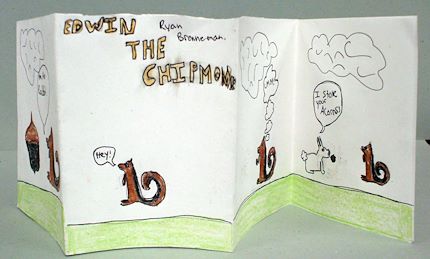 EDWIN
THE
CHIPMONK
Ryan
Bronneman.
Hey!
I Stole
your
Acorns!